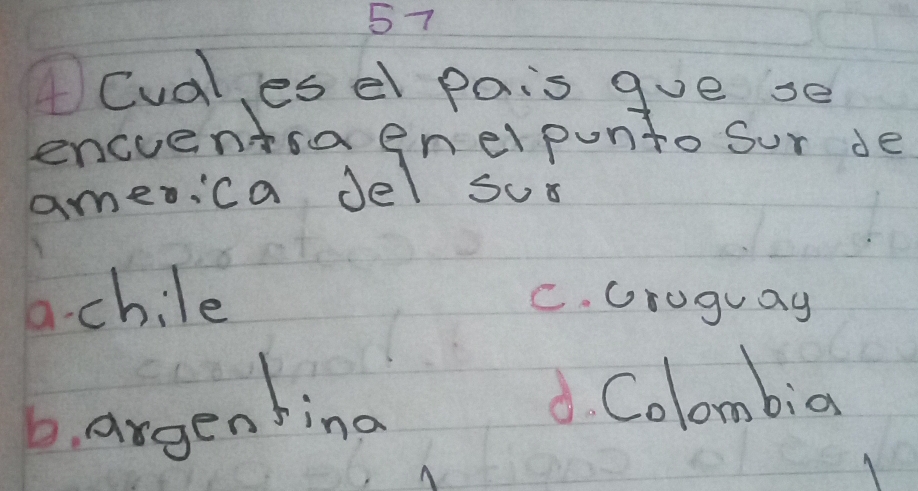 57
4 Cual, es el pais que se
encuentra en el punto Sur de
america del sur
a. chile
c. uruguay
b. argentina
d. Colombia